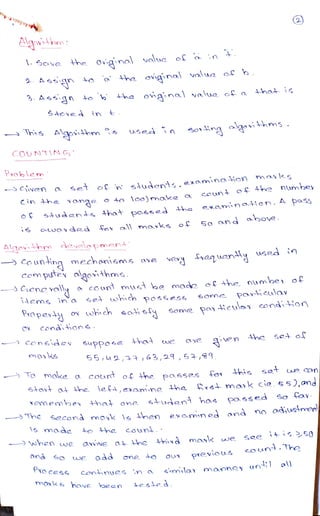 2
Algorithm:
1. Save the original value of a in t.
2. Assign to 'a' the original value of b.
3. Assign to 'b' the original value of a that is
stored in t.
→ This Algorithm is used in sorting algorithms.
COUNTING:
Problem
→ Given a set of 'n' students' examination marks
(in the range 0 to 100) make a count of the number
of students that passed the examination. A pass
is awarded for all marks of 50 and above.
Algorithm development
→ Counting mechanisms are very frequently used in
computer algorithms.
→ Generally a count must be made of the number of
items in a set which possess some particular
property or which satisfy some particular condition
or conditions.
→ consider suppose that we are given the set of
marks 55, 42, 77, 63, 29, 57, 89.
→ To make a count of the passes for this set we can
start at the left, examine the first mark (ie 55), and
remember that one student has passed so far.
→ The second mark is then examined and no adjustment
is made to the count.
→ When we arrive at the third mark we see it is ≥ 50
and so we add one to our previous count. The
process continues in a similar manner until all
marks have been tested.